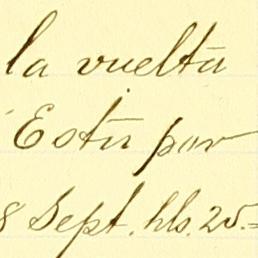 la vuelta
Esta por
8 Sept. hls. 25.=